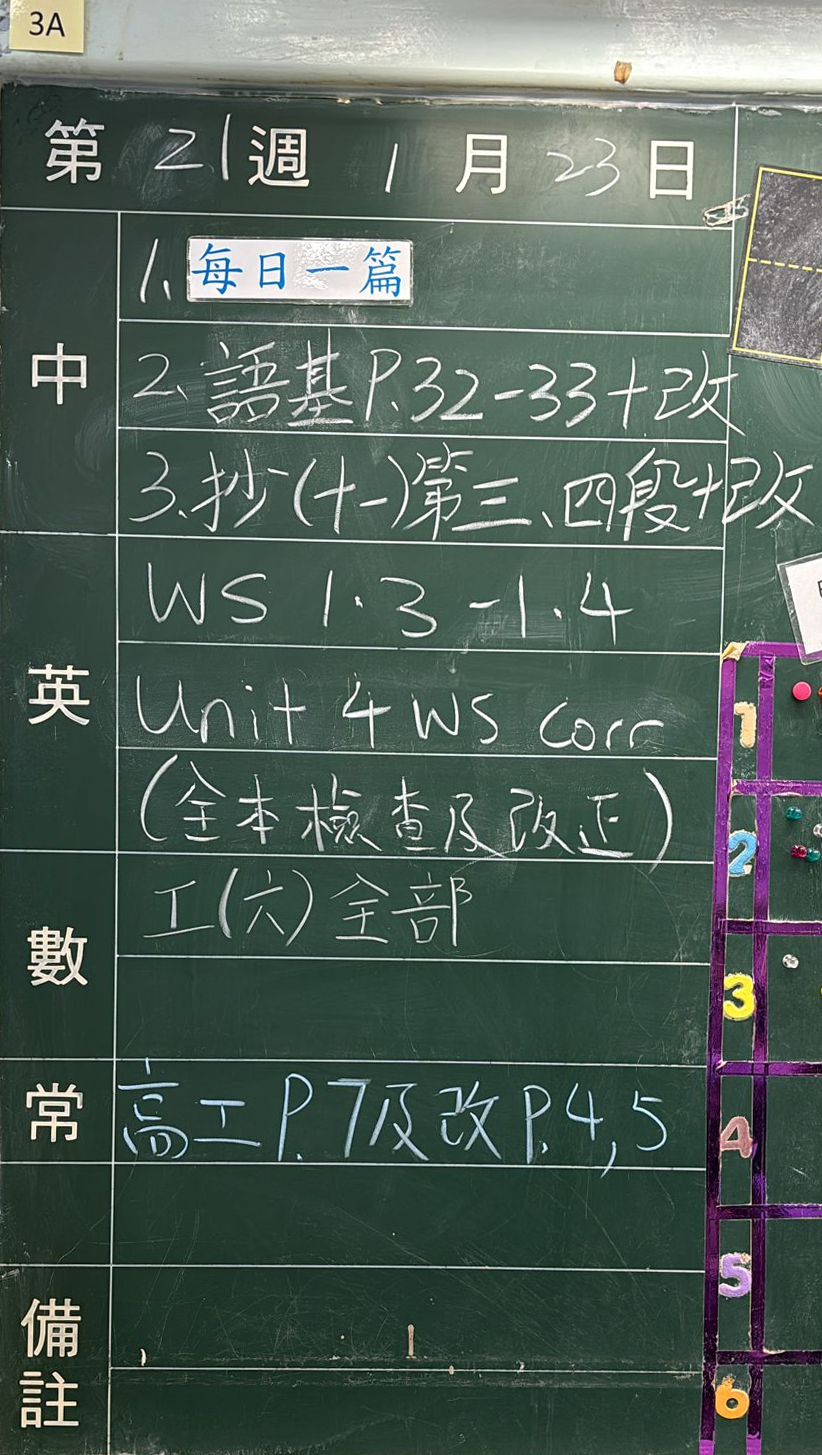 3A
第 21 週 1 月 23 日
中
1. 每日一篇
2. 語基 P.32-33+改
3. 抄(十一)第三、四段+改
英
WS 1.3 -1.4
Unit 4 WS corr
(全本檢查及改正)
數
工(六)全部
常
高工 P.7及改 P.4,5
備註
1
2
3
4
5
6